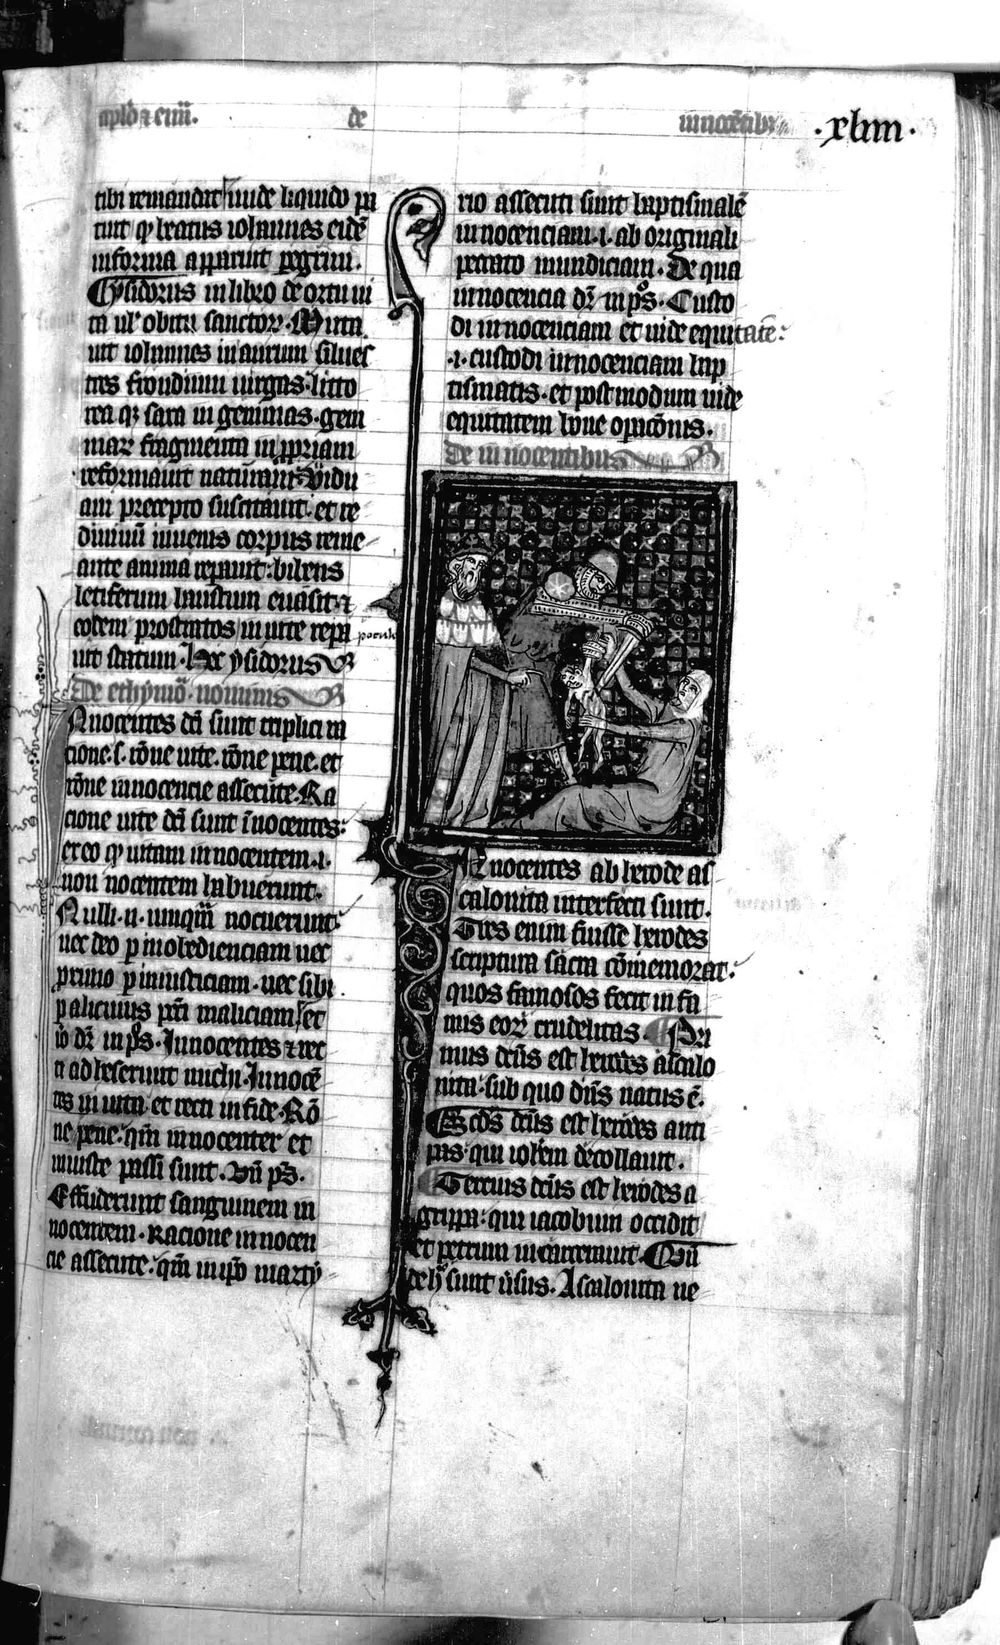 de
innocētibꝰ
·xliiii·
tibi temandat unde liquido pa
tuit ꝙ beatus iohannes eidē
in forma apparuit pegrini.
Ysidorus in libro de ortu ui
ta ul' obitu sanctoꝝ. Muta
uit iohannes in aurum siluest
tres frondium uirgas. litto
rea qꝫ saxa in gemmas. gem
maꝝ fragmenta in ppriam
reformauit naturam. Vidu
am precepto suscitauit. et re
diuiuū iuuenis corpus reuo
cante anima repauit. bibens
letiferum haustum euasit. ⁊
eodem prostratos in uite repa
poculū
uit statum. Hec ysidorus
De ethymo. nominis
Innocentes dci sunt triplici ra
cione. s. rōne uite. rōne pene. et
rōne innocencie assecute. Ra
cione uite dci sunt īnocentes.
ex eo ꝙ uitam innocentem .i.
non nocentem habuerunt.
Nulli .n. umquā nocuerunt
nec deo p inobedienciam nec
primo p iniusticiam. nec sibi
p alicuius pcti maliciam et
iō dr in ps. Innocentes ⁊ rec
ti adheserunt michi. Innocē
tes in uita et recti in fide. Rō
ne pene. qm innocenter et
iniuste passi sunt. Vn ps.
Effuderunt sanguinem in
nocentem. Racione innocen
cie assecute. qm in ipo marty
rio assecuti sunt baptismalē
innocenciam .i. ab originali
peccato mundiciam. De qua
innocencia dr in ps. Custo
di innocenciam et uide equitatē.
.i. custodi innocenciam bap
tismatis. et postmodum uide
equitatem bone opacōnis.
De innocentibus
Innocentes ab herode as
calonita interfecti sunt.
Tres enim fuisse herodes
scriptura sacra cōmemorat.
quos famosos fecit in fa
mis eoꝝ crudelitas. Pri
mus dcus est herodes ascalo
nita. sub quo dns natus ē.
Scds dcus est herodes anti
pas. qui iohem decollauit.
Tercius dcus est herodes a
grippa. qui iacobum occidit
et petrum incarcerauit. Vn
de hii sunt uersus. Ascalonita ne